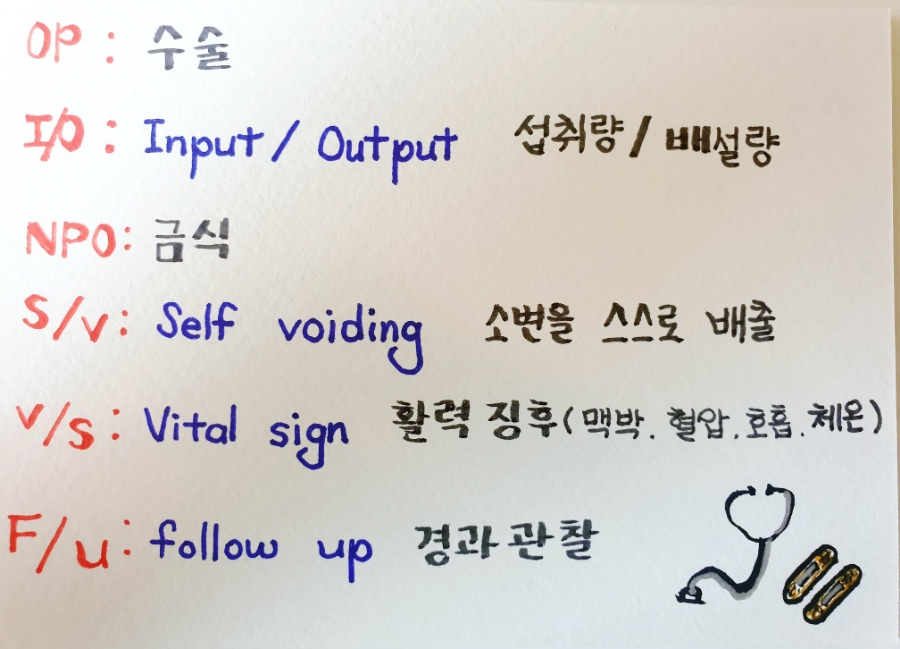 OP : 수술
I/O : Input / Output 섭취량 / 배설량
NPO: 금식
S/v: Self voiding 소변을 스스로 배출
v/s: Vital sign 활력 징후 (맥박. 혈압. 호흡. 체온)
F/u: follow up 경과 관찰